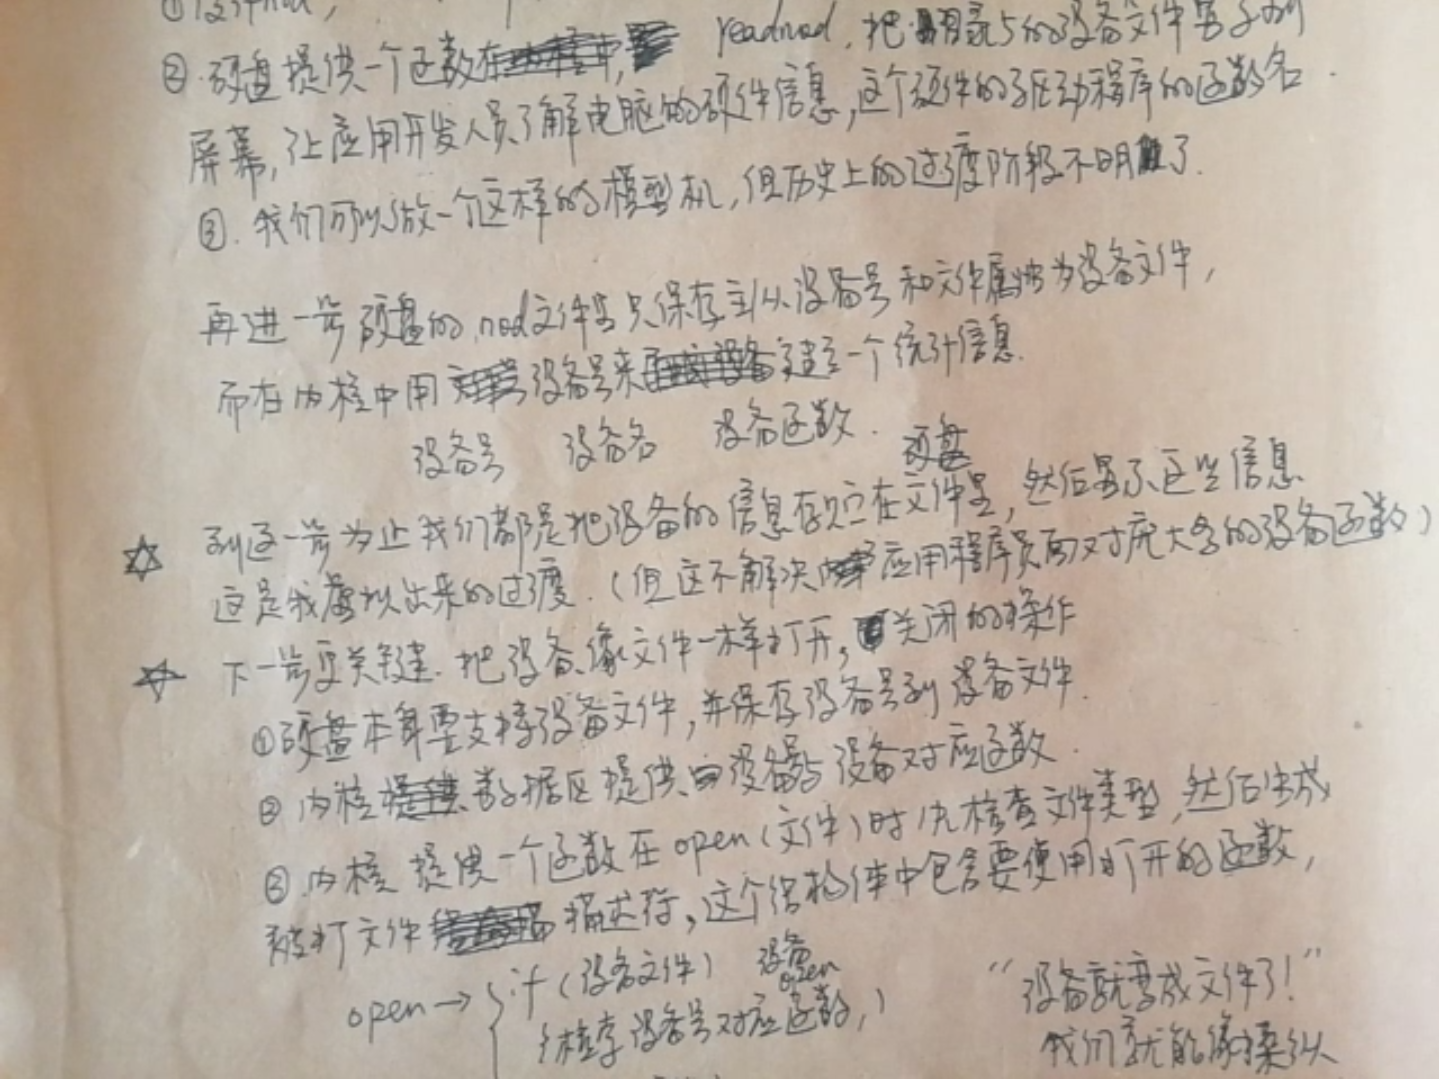 ② 硬盘提供一个函数 readnod, 把目录与的设备文件写了到
屏幕, 让应用开发人员了解电脑的硬件信息, 这个硬件的驱动程序的函数名.
③. 我们可以做一个这样的模型机, 但历史上的过渡阶段不明了.
再进一步 硬盘的 nod文件里只保存主从设备号和文件属性为设备文件,
而在内核中用 设备号来 建立一个统计信息.
设备号 设备名 设备函数.
硬盘
到这一步为止我们都是把设备的信息存贮在文件里, 然后显示这些信息
这是我虚拟出来的过渡. (但这不解决 应用程序员面对庞大的设备函数)
下一步更关键. 把设备像文件一样打开, 关闭的操作
①硬盘本身要支持设备文件, 并保存设备号到设备文件.
② 内核 数据区提供 设备号与设备对应函数.
③ 内核 提供一个函数在 open (文件) 时 先检查文件类型, 然后生成
被打文件 描述符, 这个结构体中包含要使用打开的函数,
open→ { if (设备文件) 设备open
{检索设备号对应函数, }
“设备就变成文件了!”
我们就能像操纵